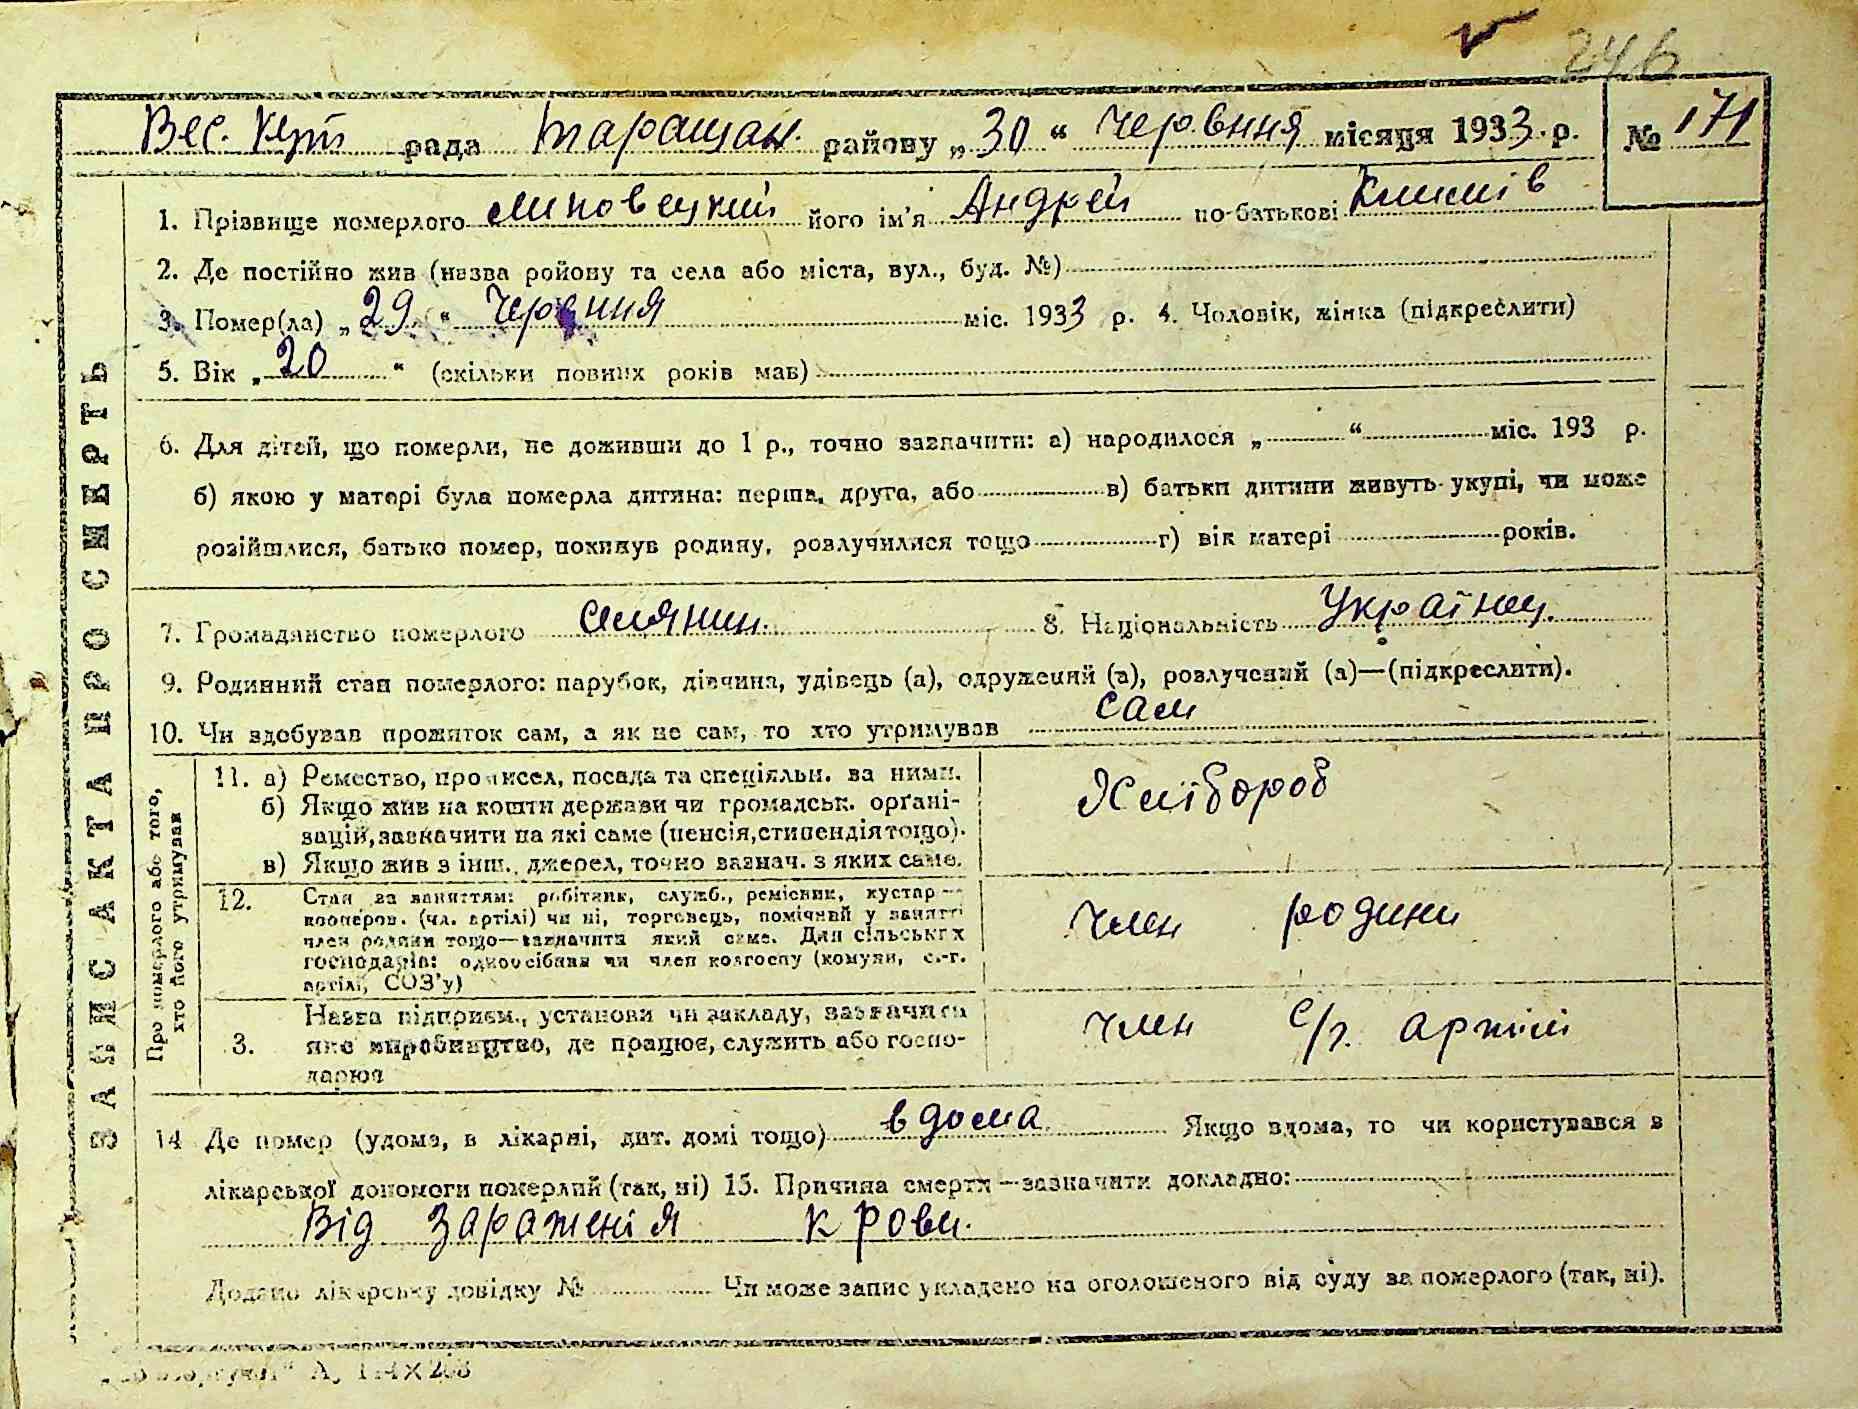 246
Вес. Кут рада Таращан. району „30“ Червння місяця 1933 р. № 171
ЗАПИС АКТА ПРО СМЕРТЬ
1. Прізвище померлого Липовецкий його ім'я Андрей по-батькові Климів
2. Де постійно жив (назва ройону та села або міста, вул., буд. №)
3. Помер(ла) „29“ Червння міс. 1933 р. 4. Чоловік, жінка (підкреслити)
5. Вік „20“ (скільки повних років мав)
6. Для дітей, що померли, не доживши до 1 р., точно зазначити: а) народилося „ “ міс. 193 р.
б) якою у матері була померла дитина: перша, друга, або в) батьки дитини живуть укупі, чи може
розійшлися, батько помер, покинув родину, розлучилися тощо г) вік матері років.
7. Громадянство померлого селянин. 8. Національність Українец.
9. Родинний стан померлого: парубок, дівчина, удівець (а), одружений (а), розлучений (а)—(підкреслити).
10. Чи здобував прожиток сам, а як не сам, то хто утримував сам
Про померлого або того, хто його утримував
11. а) Ремество, промисел, посада та спеціяльн. за ними. Хлібороб
б) Якщо жив на кошти держави чи громадськ. органі-
зацій, зазначити на які саме (пенсія, стипендія тощо).
в) Якщо жив з інш. джерел, точно зазнач. з яких саме.
12. Стан за заняттям: робітник, служб., ремісник, кустар—
кооперов. (чл. артілі) чи ні, торговець, помічний у занятті
член родини тощо—зазначити який саме. Для сільських член родини
господарів: одноосібник чи член колгоспу (комуни, с.-г.
артілі, СОЗ'у)
Назва підприєм., установи чи закладу, зазначити
3. яке виробництво, де працює, служить або госпо- член с/г. артілі
дарює
14 Де помер (удома, в лікарні, дит. домі тощо) вдома. Якщо вдома, то чи користувався в
лікарської допомоги померлий (так, ні) 15. Причина смерти—зазначити докладно:
Від зараженія крови.
Додано лікарську довідку № Чи може запис укладено на оголошеного від суду за померлого (так, ні).